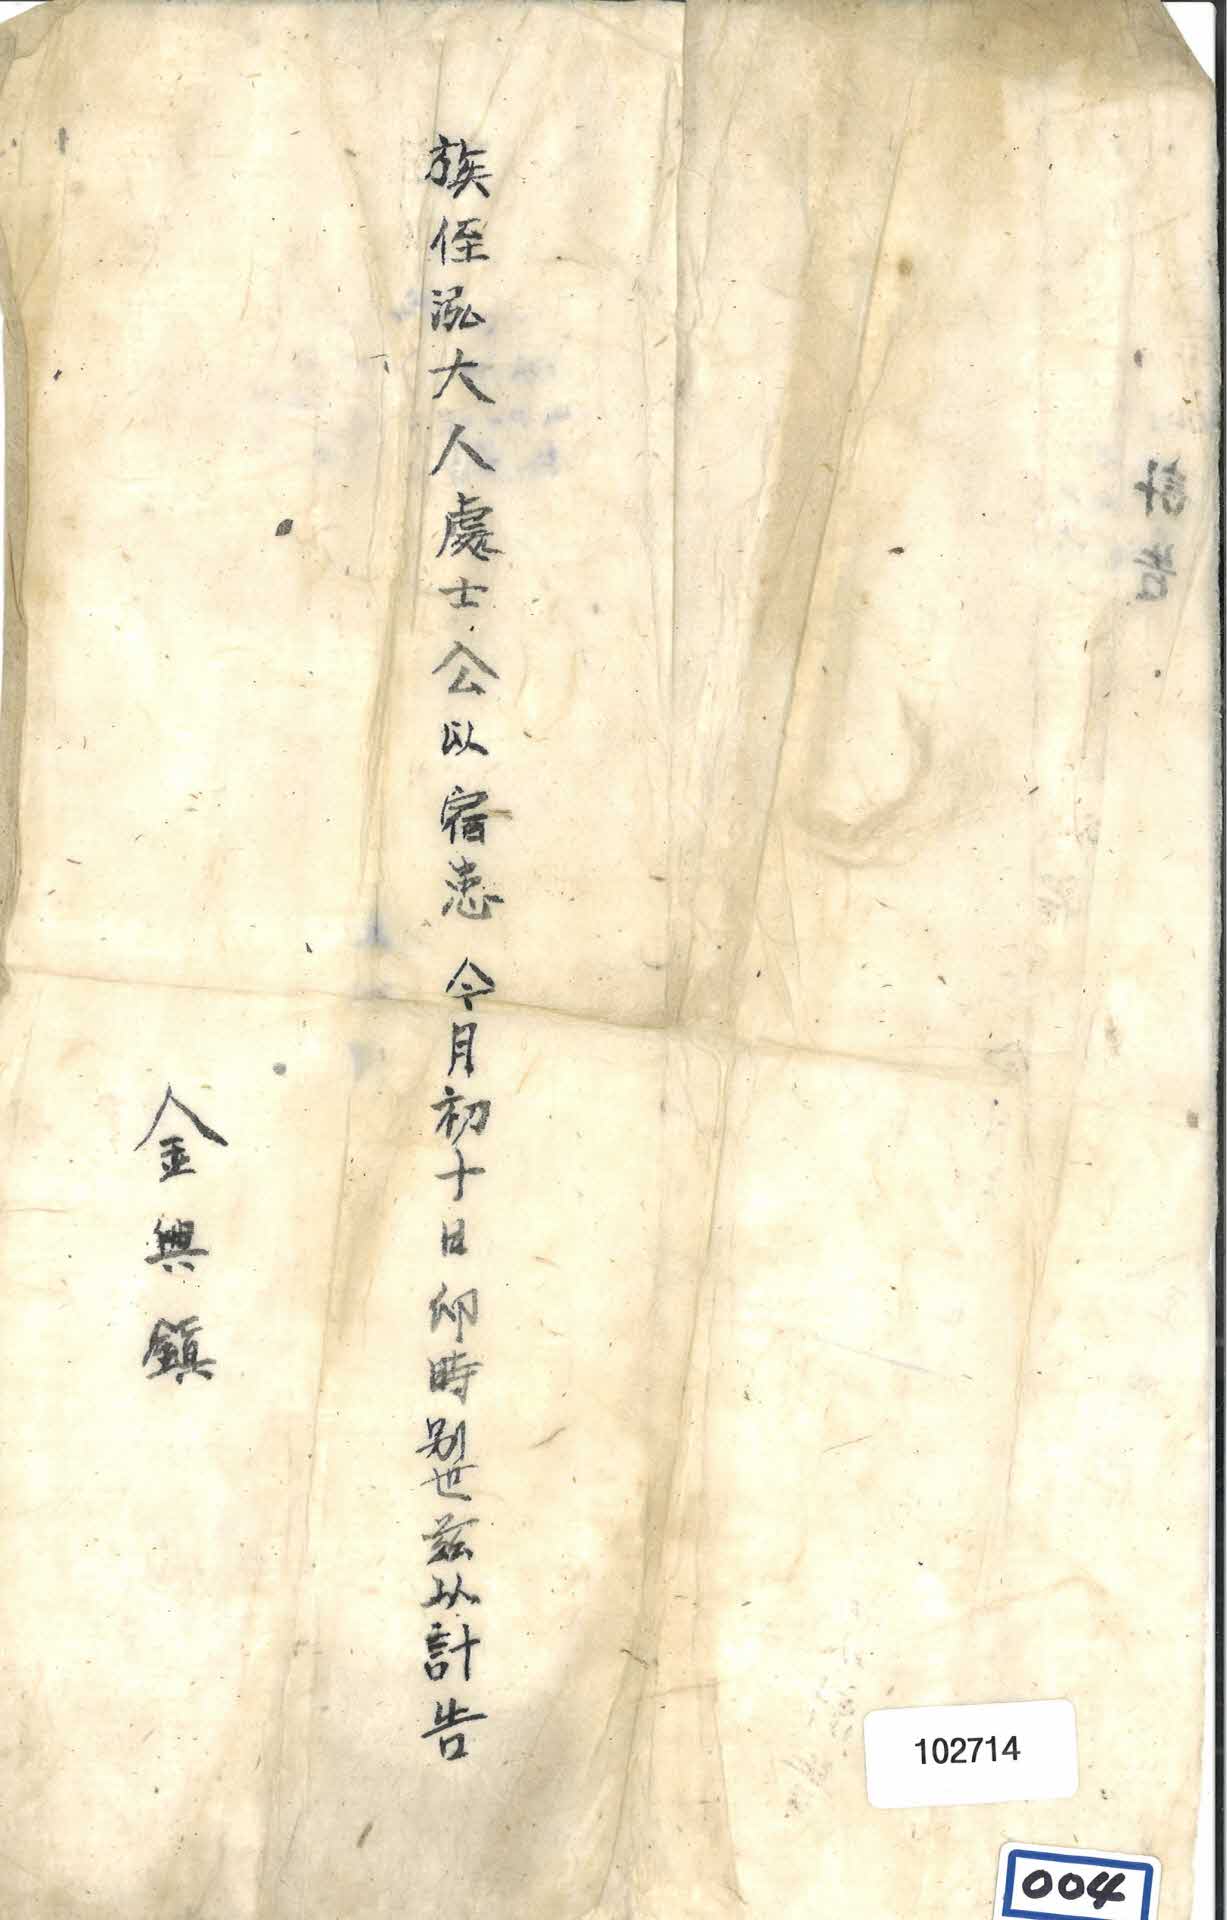 訃告
族侄泓大人處士公以宿患 今月初十日卯時別世玆以訃告
金興鎭
102714
004